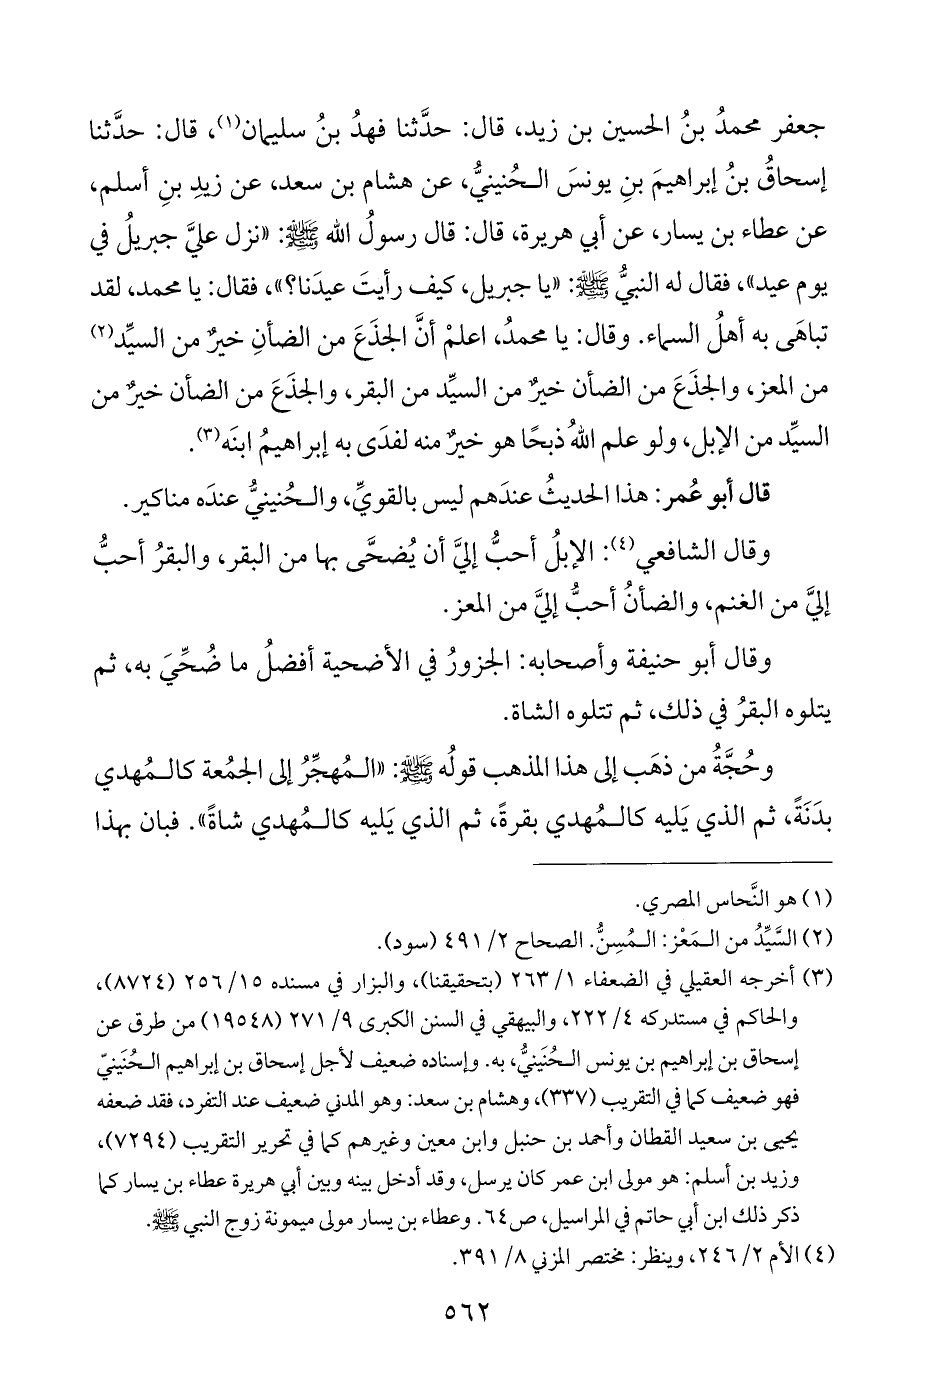 جعفر محمدُ بنُ الحسين بن زيد، قال: حدَّثنا فهدُ بنُ سليمان(١)، قال: حدَّثنا
إسحاقُ بنُ إبراهيمَ بنِ يونسَ الـحُنينيُّ، عن هشام بن سعد، عن زيدِ بنِ أسلم،
عن عطاء بن يسار، عن أبي هريرة، قال: قال رسولُ الله ﷺ: «نزل عليَّ جبريلُ في
يوم عيد»، فقال له النبيُّ ﷺ: «يا جبريل، كيف رأيتَ عيدَنا؟»، فقال: يا محمد، لقد
تباهَى به أهلُ السماء. وقال: يا محمدُ، اعلمْ أنَّ الجذَعَ من الضأنِ خيرٌ من السيِّد(٢)
من المعز، والجذَعَ من الضأن خيرٌ من السيِّد من البقر، والجذَعَ من الضأن خيرٌ من
السيِّد من الإبل، ولو علم اللهُ ذبحًا هو خيرٌ منه لفدَى به إبراهيمُ ابنَه(٣).
قال أبو عُمر: هذا الحديثُ عندَهم ليس بالقويِّ، والـحُنينيُّ عندَه مناكير.
وقال الشافعي(٤): الإبلُ أحبُّ إليَّ أن يُضحَّى بها من البقر، والبقرُ أحبُّ
إليَّ من الغنم، والضأنُ أحبُّ إليَّ من المعز.
وقال أبو حنيفة وأصحابه: الجزورُ في الأضحية أفضلُ ما ضُحِّيَ به، ثم
يتلوه البقرُ في ذلك، ثم تتلوه الشاة.
وحُجَّةُ من ذهَب إلى هذا المذهب قولُه ﷺ: «الـمُهجِّرُ إلى الجمُعة كالـمُهدي
بدَنَةً، ثم الذي يَليه كالـمُهدي بقرةً، ثم الذي يَليه كالـمُهدي شاةً». فبان بهذا
(١) هو النَّحاس المصري.
(٢) السَّيِّدُ من الـمَعْز: الـمُسِنُّ. الصحاح ٢/ ٤٩١ (سود).
(٣) أخرجه العقيلي في الضعفاء ١/ ٢٦٣ (بتحقيقنا)، والبزار في مسنده ١٥/ ٢٥٦ (٨٧٢٤)،
والحاكم في مستدركه ٤/ ٢٢٢، والبيهقي في السنن الكبرى ٩/ ٢٧١ (١٩٥٤٨) من طرق عن
إسحاق بن إبراهيم بن يونس الـحُنَينيُّ، به. وإسناده ضعيف لأجل إسحاق بن إبراهيم الـحُنَينيّ
فهو ضعيف كما في التقريب (٣٣٧)، وهشام بن سعد: وهو المدني ضعيف عند التفرد، فقد ضعفه
يحيى بن سعيد القطان وأحمد بن حنبل وابن معين وغيرهم كما في تحرير التقريب (٧٢٩٤)،
وزيد بن أسلم: هو مولى ابن عمر كان يرسل، وقد أدخل بينه وبين أبي هريرة عطاء بن يسار كما
ذكر ذلك ابن أبي حاتم في المراسيل، ص٦٤. وعطاء بن يسار مولى ميمونة زوج النبي ﷺ.
(٤) الأم ٢/ ٢٤٦، وينظر: مختصر المزني ٨/ ٣٩١.
٥٦٢